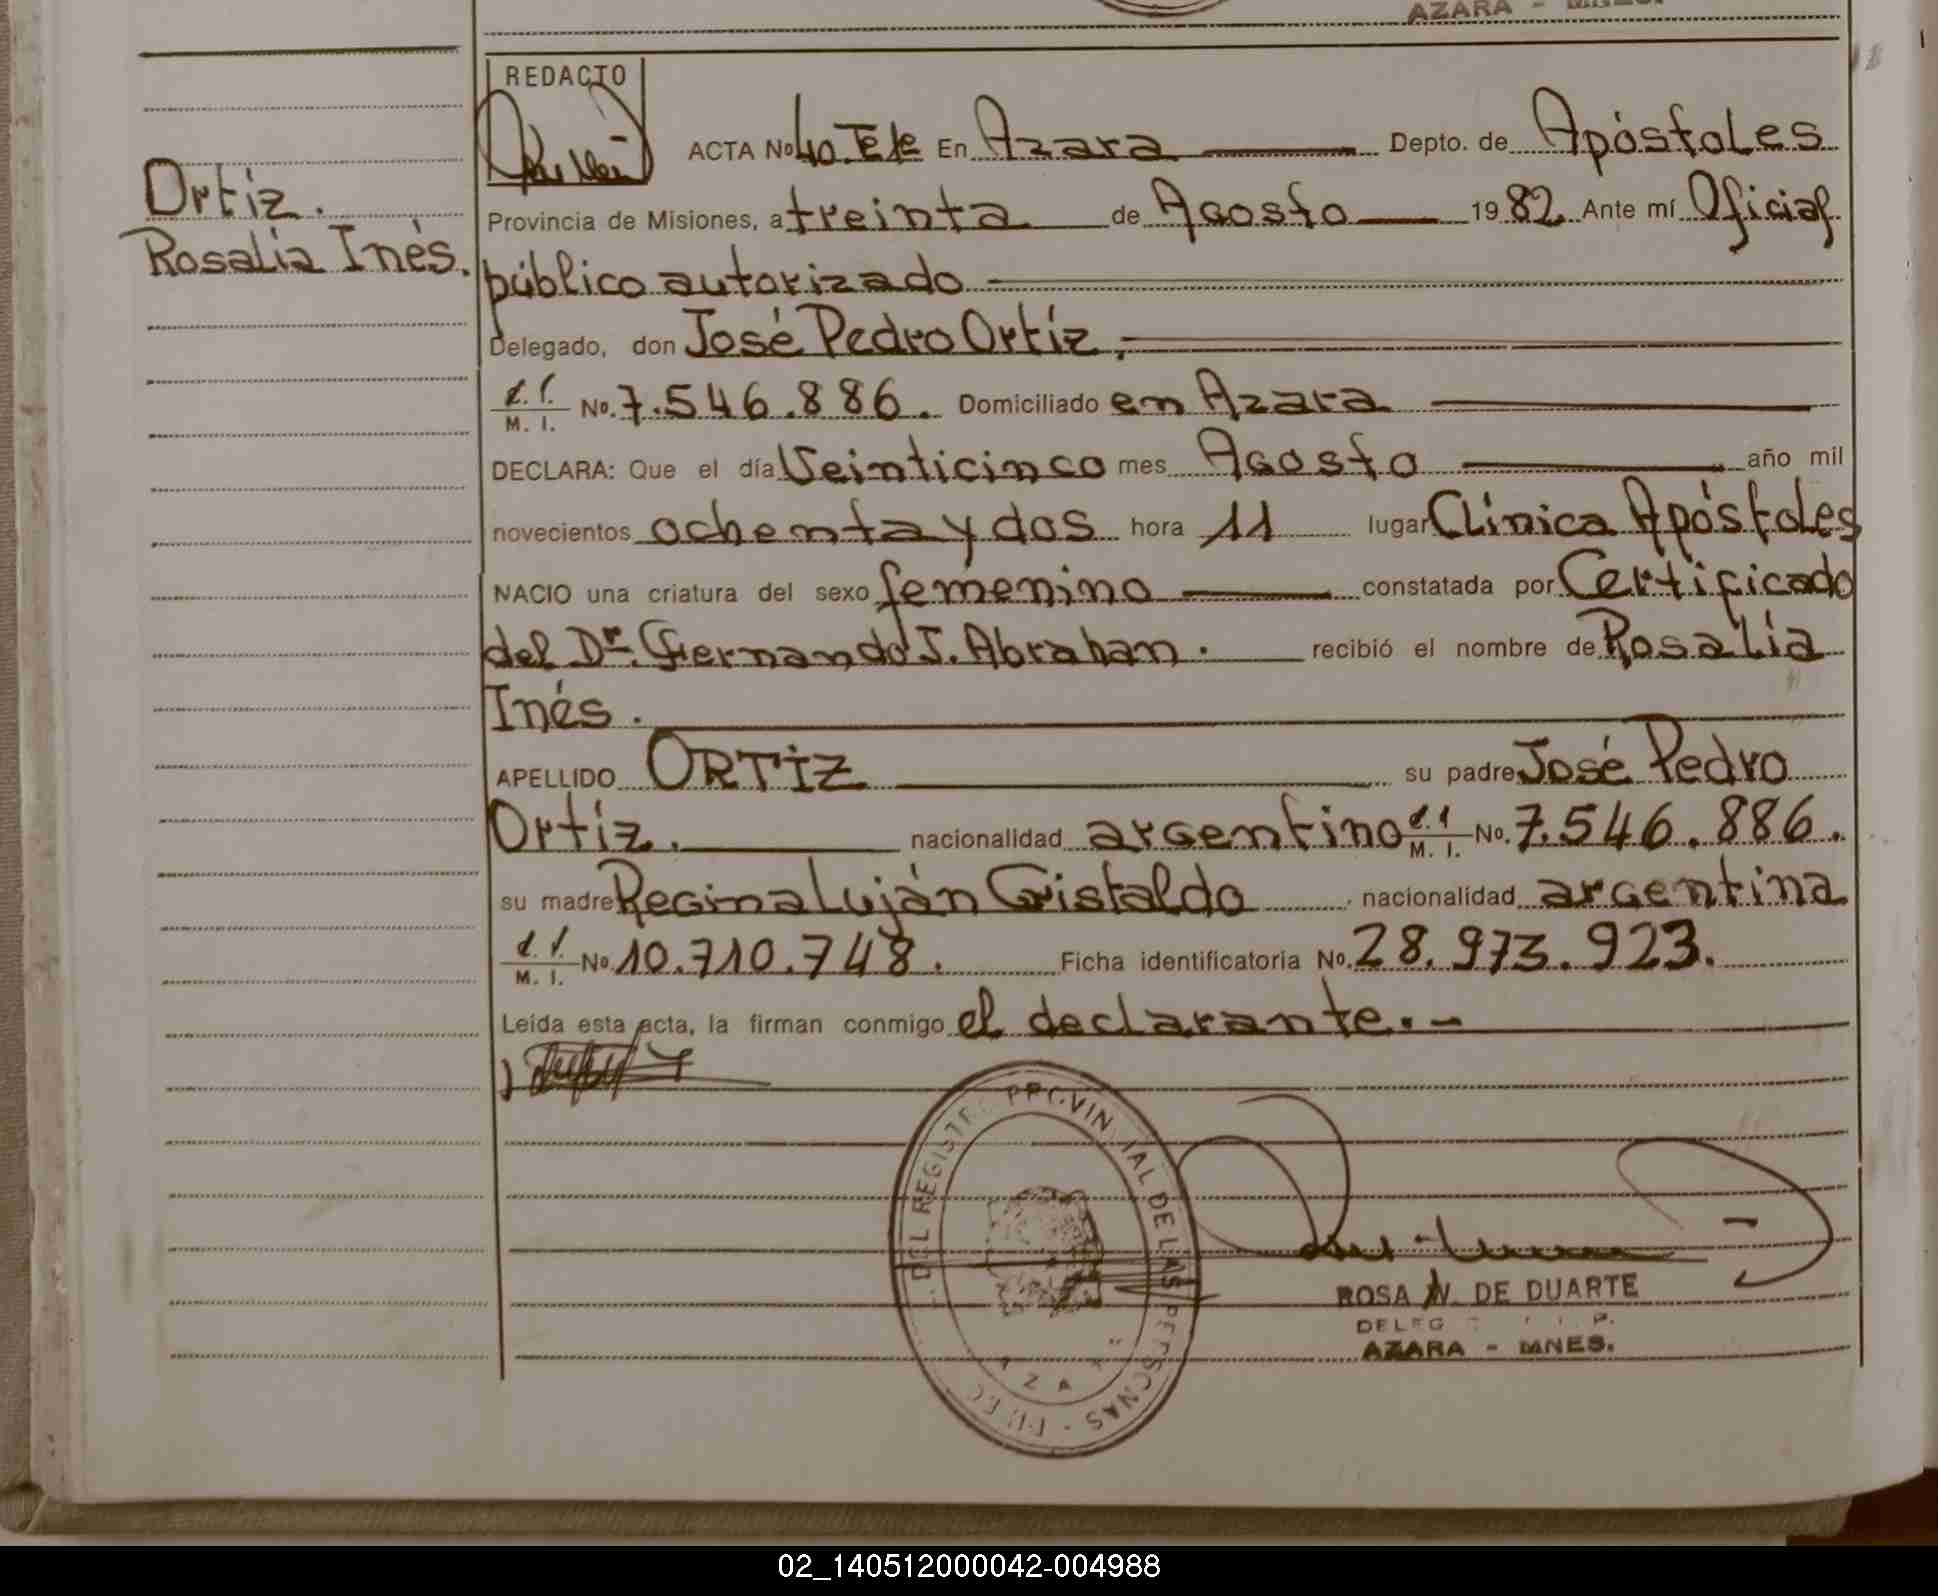 AZARA - MNES.
REDACTO
ACTA No 40. Tº Iº En Azara Depto. de Apóstoles
Ortiz.
Provincia de Misiones, a treinta de Agosto 1982. Ante mí Oficial
Rosalia Inés.
público autorizado
Delegado, don José Pedro Ortíz,
M. I. No. 7.546.886. Domiciliado en Azara
DECLARA: Que el día Veinticinco mes Agosto año mil
novecientos ochenta y dos hora 11 lugar Clínica Apóstoles
NACIO una criatura del sexo femenino constatada por Certificado
del Dr. Hernando J. Abrahan. recibió el nombre de Rosalía
Inés.
APELLIDO ORTÍZ su padre José Pedro
Ortíz. nacionalidad argentino M. I. No. 7.546.886.
su madre Regina Luján Cristaldo nacionalidad argentina
M. I. No 10.710.748. Ficha identificatoria No. 28.973.923.
Leída esta acta, la firman conmigo el declarante.-
DEL REGISTRO PROVINCIAL DE LAS PERSONAS
AZARA
ROSA N. DE DUARTE
AZARA - MNES.
02_140512000042-004988